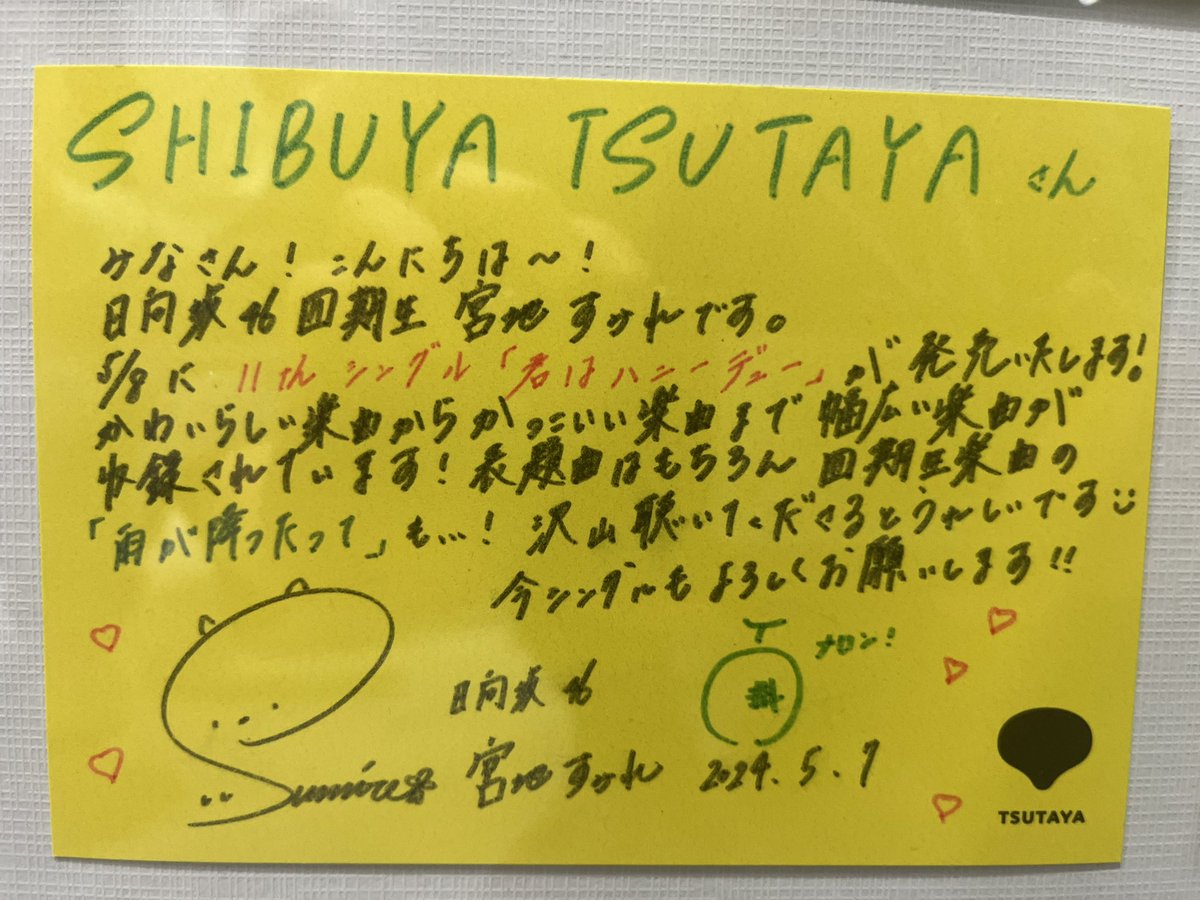 SHIBUYA TSUTAYA さん
みなさん！こんにちは〜！
日向坂46 四期生 宮地すみれです。
5/8に 11thシングル「君はハニーデュー」が発売いたします！
かわいらしい楽曲からかっこいい楽曲まで 幅広い楽曲が
収録されています！表題曲はもちろん 四期生楽曲の
「雨が降ったって」も…！沢山聴いてくださるとうれしいです
今シングルもよろしくお願いします!!
メロン！
日向坂46
Sumire 宮地すみれ 2024.5.7
TSUTAYA